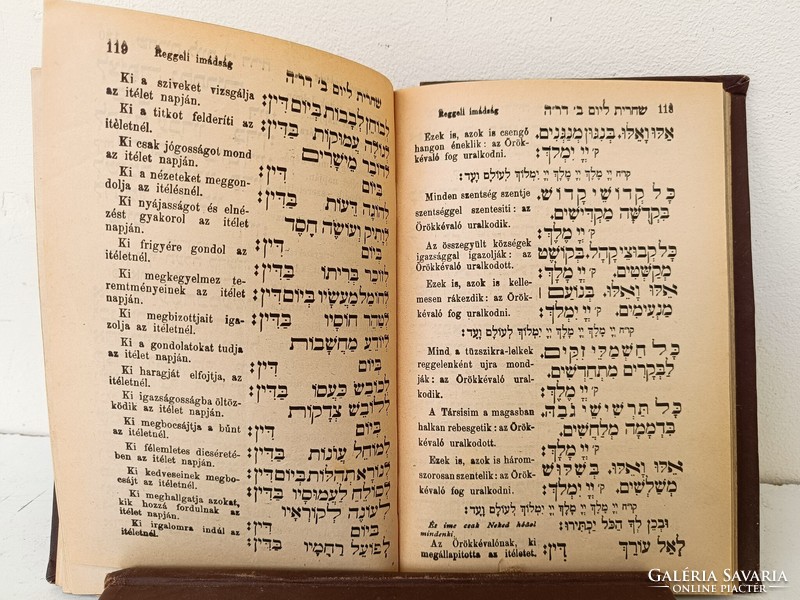 Reggeli imádság שחרית ליום ב׳ דר״ה 118
Ezek is, azok is csengő
hangon éneklik: az Örök-
kévaló fog uralkodni.
Minden szentség szentje
szentséggel szentesiti: az
Örökkévaló uralkodik.
Az összegyült községek
igazsággal igazolják: az
Örökkévaló uralkodott.
Ezek is, azok is kelle-
mesen rákezdik: az Örök-
kévaló fog uralkodni.
Mind a tüzszikra-lelkek
reggelenként ujra mond-
ják: az Örökkévaló ural-
kodik.
A Társisim a magasban
halkan rebesgetik: az Örök-
kévaló uralkodott.
Ezek is, azok is három-
szorosan szentelik: az Örök-
kévaló fog uralkodni.
És ime csak Neked hódol
mindenki.
Az Örökkévalónak, ki
megállapitotta az itéletet.
אֵלּוּ וָאֵלּוּ. בְּנִגּוּן מְנַגְּנִים.
ק׳ יְיָ יִמְלֹךְ:
קו״ח יְיָ מֶלֶךְ יְיָ מָלָךְ יְיָ יִמְלֹוךְ לְעוֹלָם וָעֶד:
כָּל קְדוֹשֵׁי קָדוֹשׁ.
בִּקְדֻשָּׁה מַקְדִּישִׁים.
ק׳ יְיָ מֶלֶךְ:
כָּל קְבוּצֵי קָהָל. בְּקֹשְׁט
מְקַשְּׁטִים. ק׳ יְיָ מָלָךְ:
אֵלּוּ וָאֵלּוּ. בְּנֹעַם
מַנְעִימִים. ק׳ יְיָ יִמְלֹךְ:
קו״ח יְיָ מֶלֶךְ יְיָ מָלָךְ יְיָ יִמְלוֹךְ לְעוֹלָם וָעֶד:
כָּל חַשְׁמַלֵּי זִקִּים.
לַבְּקָרִים מִתְחַדְּשִׁים.
ק׳ יְיָ מֶלֶךְ:
כָּל תַּרְשִׁישֵׁי גֹבַהּ.
בִּדְמָמָה מְלַחֲשִׁים.
ק׳ יְיָ מָלָךְ:
אֵלּוּ וָאֵלּוּ. בְּשִׁלּוּשׁ
מְשַׁלְּשִׁים. ק׳ יְיָ יִמְלֹךְ:
קו״ח יְיָ מֶלֶךְ יְיָ מָלָךְ יְיָ יִמְלוֹךְ לְעוֹלָם וָעֶד:
וּבְכֵן לְךָ הַכֹּל יַכְתִּירוּ:
לְאֵל עוֹרֵךְ דִּין:
119 Reggeli imádság שחרית ליום ב׳ דר״ה
Ki a sziveket vizsgálja
az itélet napján.
Ki a titkot felderíti az
itèletnél.
Ki csak jógosságot mond
az itélet napján.
Ki a nézeteket meggon-
dolja az itélésnél.
Ki nyájasságot és elné-
zést gyakorol az itélet
napján.
Ki frigyére gondol az
itéletnél.
Ki megkegyelmez te-
remtményeinek az itélet
napján.
Ki megbizottjait iga-
zolja az itéletnél.
Ki a gondolatokat tudja
az itélet napján.
Ki haragját elfojtja, az
itéletnél.
Ki igazságosságba öltöz-
ködik az itélet napján.
Ki megbocsájtja a bűnt
az itéletnél.
Ki félemletes dicséreté-
ben az itélet napján.
Ki kedveseinek megbo-
csájt az itéletnél.
Ki meghallgatja azokat,
kik hozzá fordulnak az
itélet napján.
Ki irgalomra indúl az
itéletnél.
לְבוֹחֵן לְבָבוֹת בְּיוֹם דִּין:
לְגוֹלֶה עֲמוּקוֹת בַּדִּין:
לְדוֹבֵר מֵישָׁרִים
בְּיוֹם דִּין:
לְהוֹגֶה דֵעוֹת בַּדִּין:
לְוָתִיק וְעוֹשֶׂה חֶסֶד
בְּיוֹם דִּין:
לְזוֹכֵר בְּרִיתוֹ בַּדִּין:
לְחוֹמֵל מַעֲשָׂיו בְּיוֹם דִּין:
לְטַהֵר חוֹסָיו בַּדִּין:
לְיוֹדֵעַ מַחֲשָׁבוֹת
בְּיוֹם דִּין:
לְכוֹבֵשׁ כַּעְסוֹ בַּדִּין:
לְלוֹבֵשׁ צְדָקוֹת
בְּיוֹם דִּין:
לְמוֹחֵל עֲוֹנוֹת בַּדִּין:
לְנוֹרָא תְהִלּוֹת בְּיוֹם דִּין:
לְסוֹלֵחַ לַעֲמוּסָיו בַּדִּין:
לְעוֹנֶה לְקוֹרְאָיו
בְּיוֹם דִּין:
לְפוֹעֵל רַחֲמָיו בַּדִּין:
GALÉRIA SAVARIA
ONLINE PIACTÉR